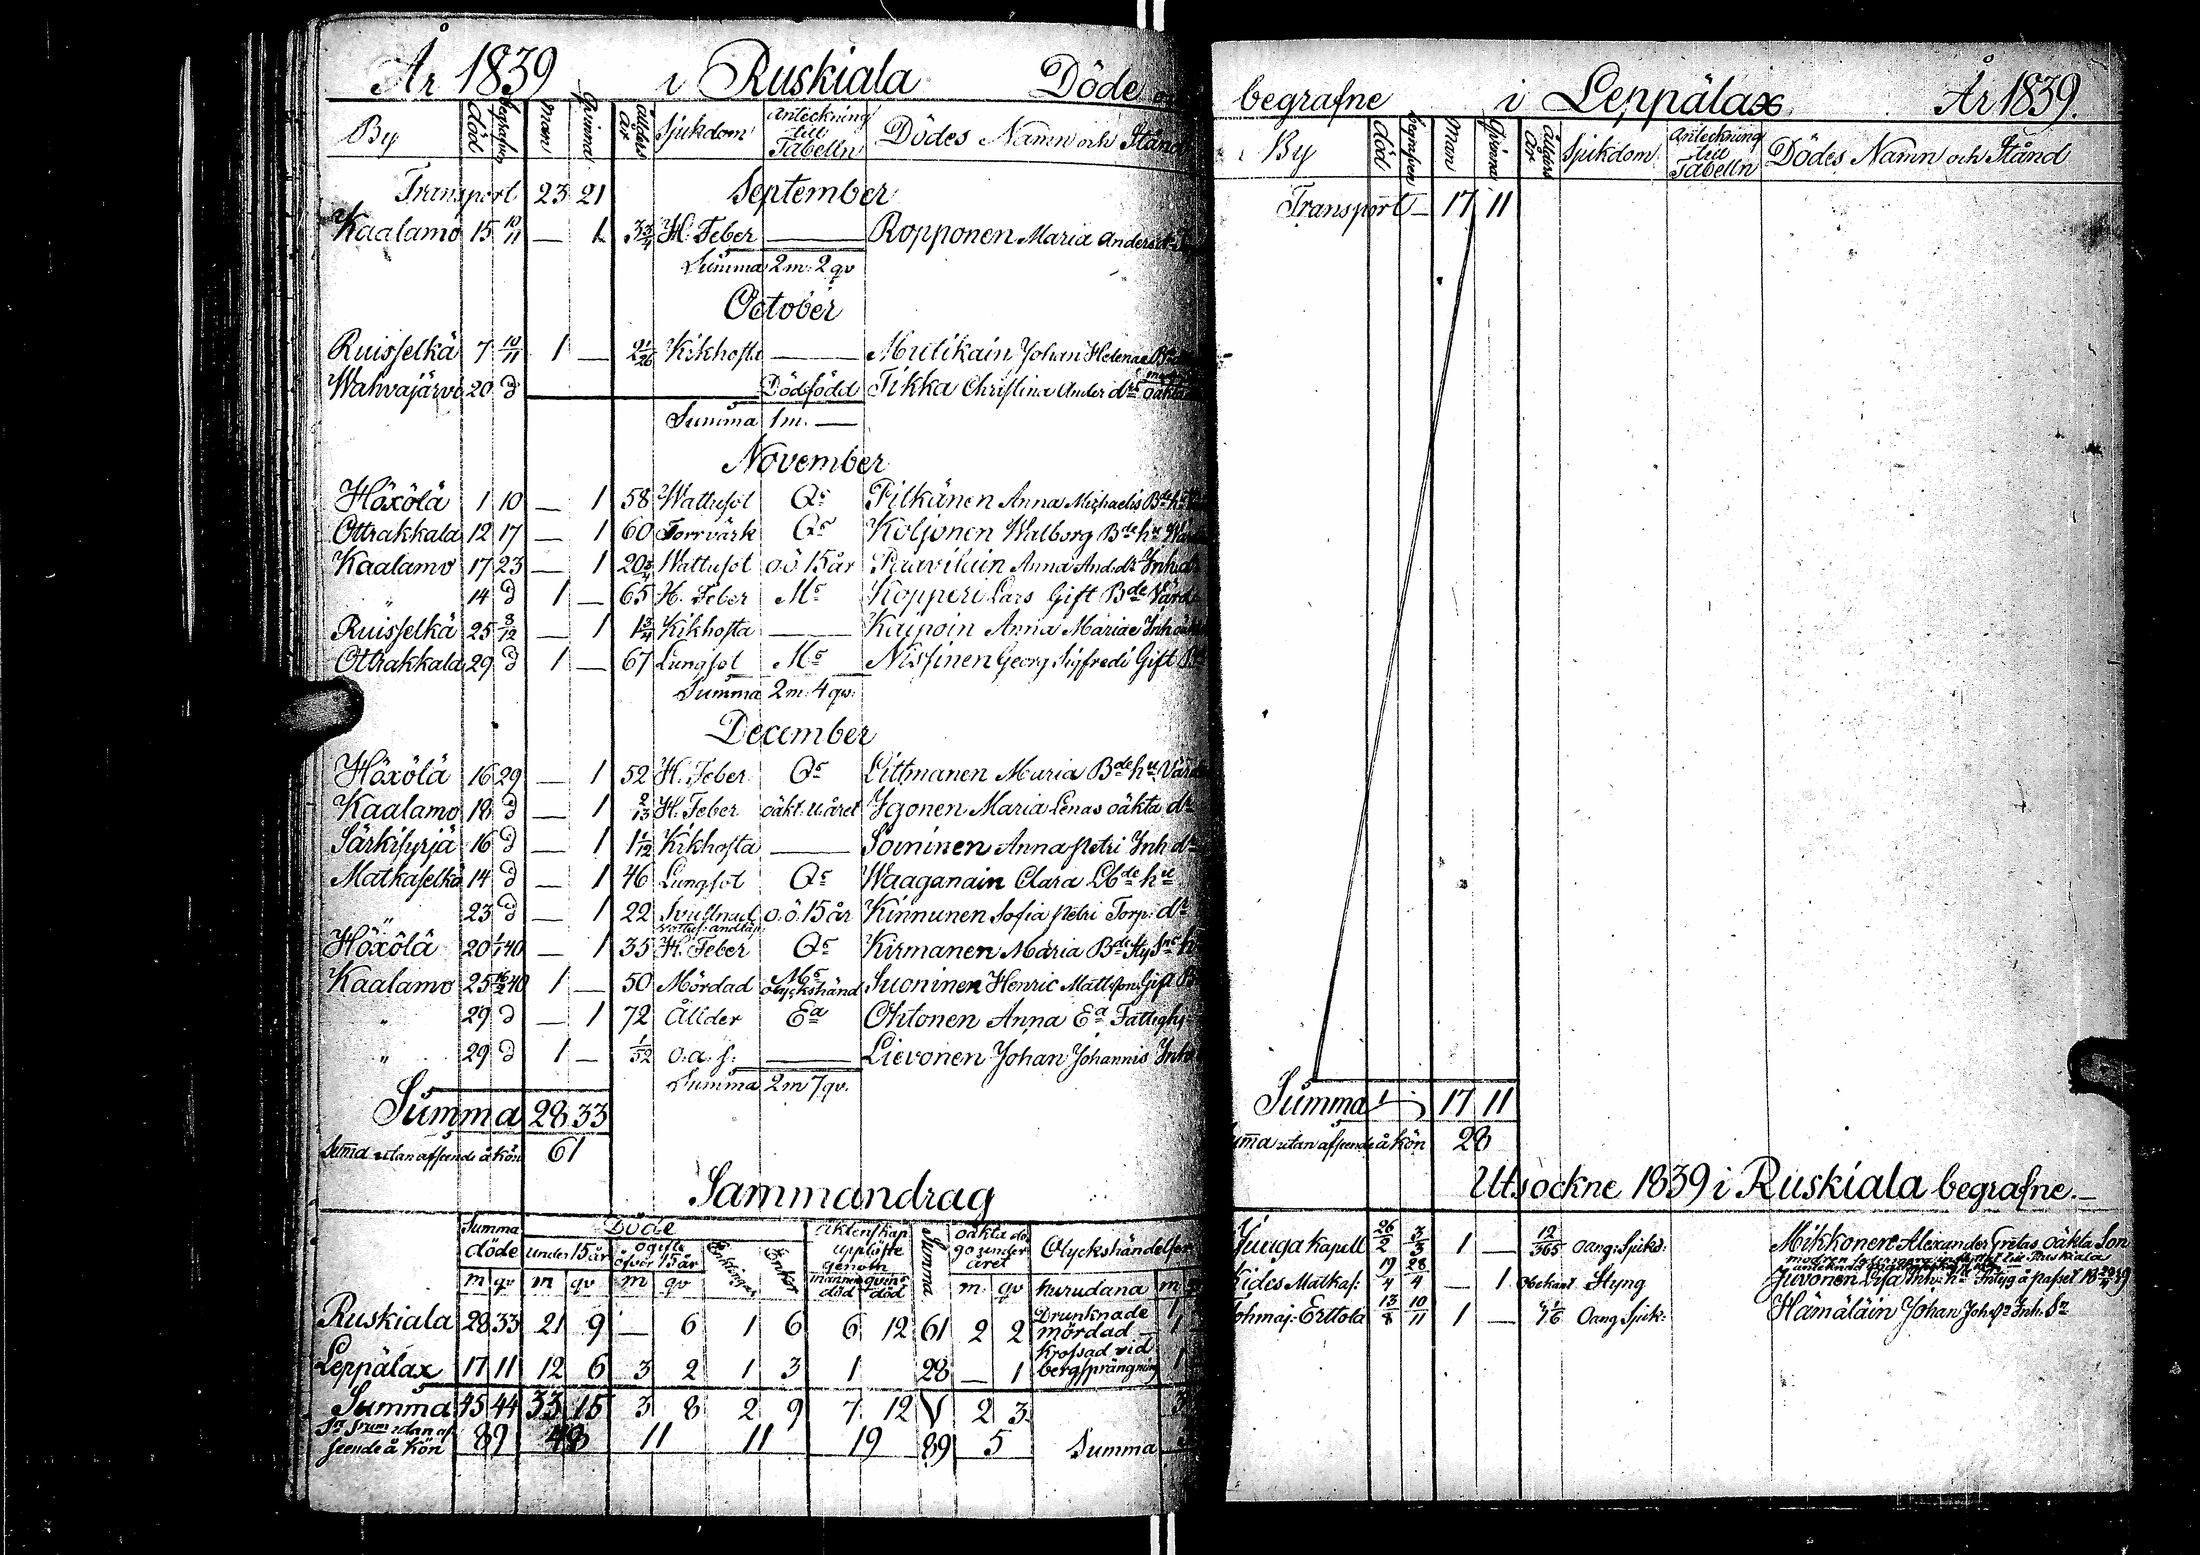 År 1839 i Ruskiala Döde
By död begrafven Man Qvinna ålders år Sjukdom Anteckning till Tabelln Dödes Namn och Stånd
Transport 23 21 September
Kaalamo 15 10/11 — 1 3 3/4 H. Feber — Ropponen Maria Anders d:r
Summa 2 m: 2 qv
October
Ruisselkä 7 10/11 1 — Kikhosta — Mutikain Johan Helenae
Wahvajärvi 20 d Dödfödd Tikka Christina Ander d:rs oäkta
Summa 1 m. —
November
Höxölä 1 10 — 1 58 Wattusot Q:s Pilkänen Anna Michaelis B:de h:u
Ottrakkala 12 17 — 1 60 Torrvärk Q:s Koljonen Walborg B:de h:u
Kaalamo 17 23 — 1 20 3/4 Wattusot o.ö 15 år Paavilain Anna And: d:r Inh: d:r
" 14 d 1 — 65 H. Feber M:s Kopperi Lars Gift B:de Värd
Ruisselkä 25 3/12 — 1 1 3/4 Kikhosta — Kaipoin Anna Mariae Inh oäkta
Ottrakkala 29 d 1 — 67 Lungsot M:s Nissinen Georg Sigfredi Gift
Summa 2 m: 4 qv:
December
Höxölä 16 29 — 1 52 H. Feber Q:s Littmanen Maria B:de h:u Värd
Kaalamo 18 d — 1 2/13 H: Feber oäkt: u: året Ygonen Maria Lenas oäkta d:r
Särkisyrjä 16 d — 1 1 1/12 Kikhosta — Soininen Anna Petri Inh d:r
Matkaselkä 14 d — 1 46 Lungsot Q:s Waaganain Clara Lb:de h:u
" 23 d — 1 22 Svullnad o.ö. 15 år Kinnunen Sofia Petri Torp: d:r
Höxölä 20 1/1 40 — 1 35 H. Feber Q:s Kirmanen Maria B:de
Kaalamo 25 40 1 — 50 Mördad M:s Olyckshänd Suoninen Henric Mattsson Gift
" 29 d — 1 72 Ållder E:a Ohtonen Anna E:a Fattighj:
" 29 d 1 — 1/52 o.a.s: — Lievonen Johan Johannis Inh
Summa 2 m 7 qv.
Summa 28 33
Summa utan afseende å kön 61
Sammandrag
Summa döde Döde Äktenskap upplöste genom Summa oäkta do go under året Olyckshändelser
under 15 år ogifte öfver 15 år Enklingar Enkor
m qv m qv m qv männens död qvin:s död m qv hurudana m
Ruskiala 28 33 21 9 — 6 1 6 6 12 61 2 2 Drunknade 1
mördad — 1
Leppälax 17 11 12 6 3 2 1 3 1 28 — 1 Krossad vid bergsprängning 1
Summa 45 44 33 15 3 8 2 9 7 12 V 2 3 3
S:a S:rum utan afseende å kön 89 48 11 11 19 89 5 Summa
begrafne i Leppälax År 1839.
By död begrafven Man Qvinna ålders år Sjukdom Anteckning till Tabelln Dödes Namn och Stånd
Transport — 17 11
Summa 17 11
Summa utan afseende å kön 28
Utsockne 1839 i Ruskiala begrafne.—
Juuga Kapell 26/2 3/3 1 — 12/365 oang: Sjukd: Mikkonen Alexander Gretas oäkta Son
Kides Matkas: 19/4 28/4 — 1 Obekant Styng Juvonen Lisa Inh: h:u
Tohmaj: Erttola 13/8 10/11 1 — Oang Sjuk: Hämäläin Johan Joh:s Inh: S:n